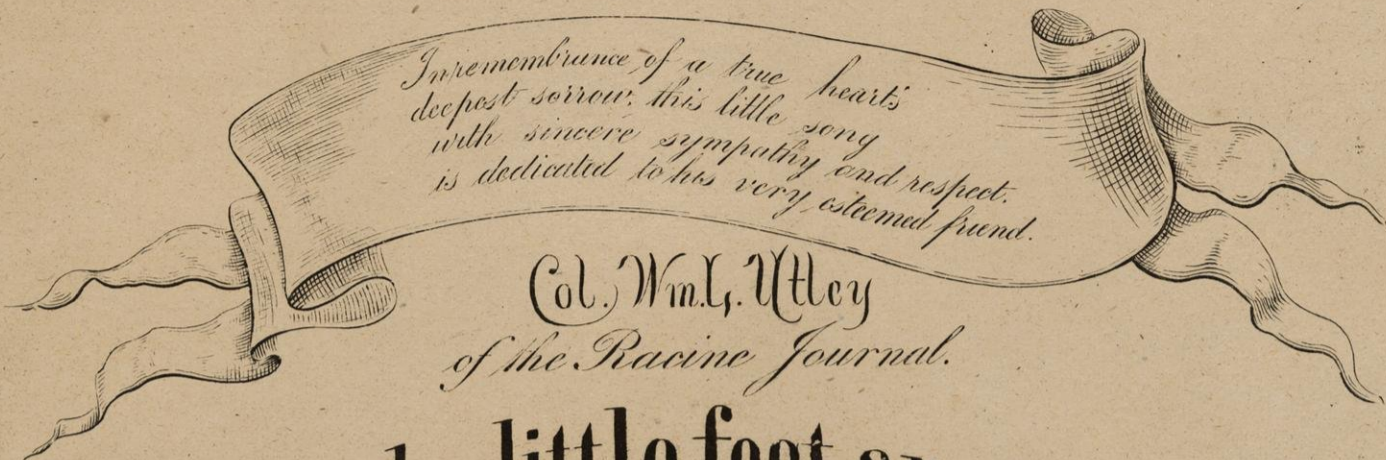 In remembrance of a true heart's
deepest sorrow, this little song
with sincere sympathy and respect.
is dedicated to his very esteemed friend.
Col. Wm. L. Utley
of the Racine Journal.
little feet